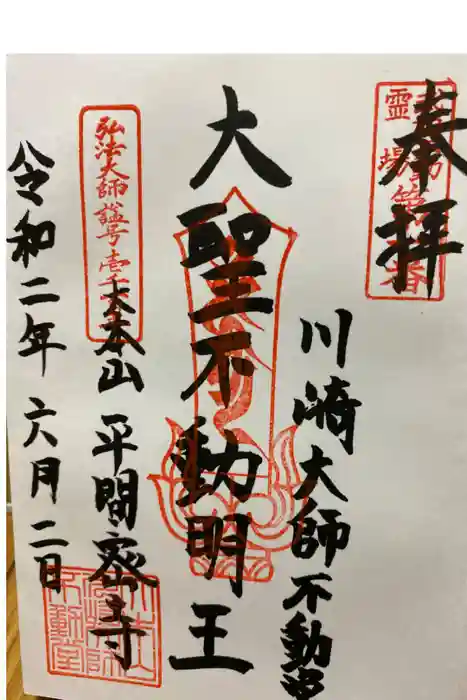 奉拝
川崎大師不動堂
大聖不動明王
弘法大師諡号壱千
大本山平間密寺
令和二年六月二日